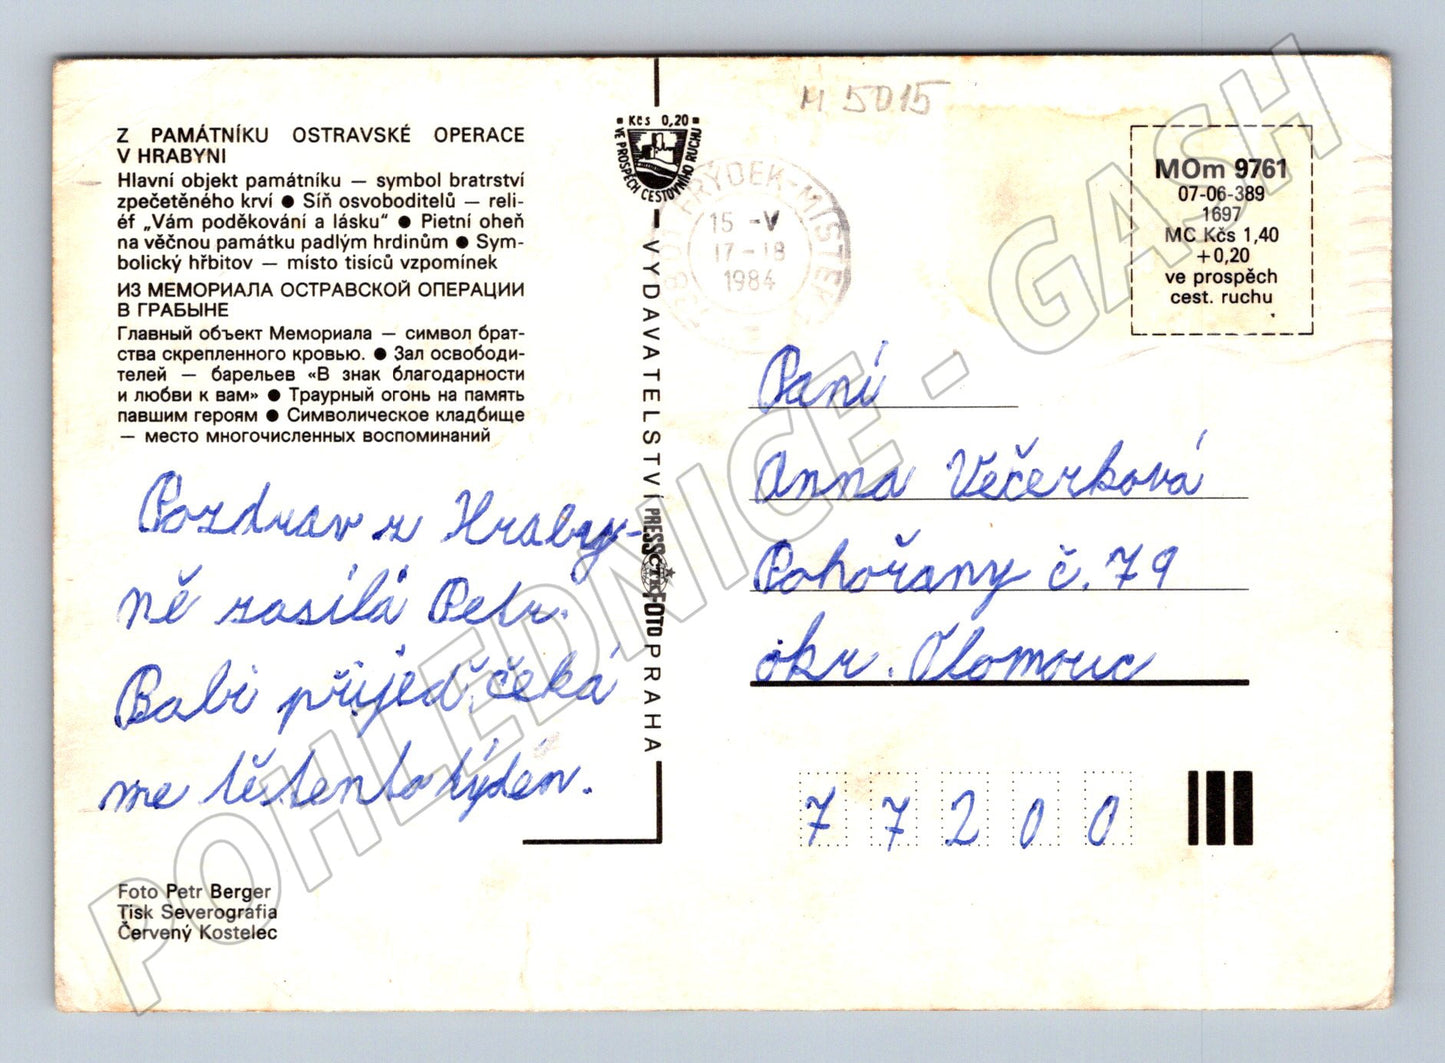 M 5015
Z PAMÁTNÍKU OSTRAVSKÉ OPERACE
V HRABYNI
Hlavní objekt památníku — symbol bratrství
zpečetěného krví ● Síň osvoboditelů — reli-
éf „Vám poděkování a lásku" ● Pietní oheň
na věčnou památku padlým hrdinům ● Sym-
bolický hřbitov — místo tisíců vzpomínek
ИЗ МЕМОРИАЛА ОСТРАВСКОЙ ОПЕРАЦИИ
В ГРАБЫНЕ
Главный объект Мемориала — символ брат-
ства скрепленного кровью. ● Зал освободи-
телей — барельев «В знак благодарности
и любви к вам» ● Траурный огонь на память
павшим героям ● Символическое кладбище
— место многочисленных воспоминаний
Pozdrav z Hraby-
ně zasílá Petr.
Babi přijeď, čeká
me tě tento týden.
Foto Petr Berger
Tisk Severografia
Červený Kostelec
Kčs 0,20
VE PROSPĚCH CESTOVNÍHO RUCHU
VYDAVATELSTVÍ PRESSFOTO PRAHA
ČTK
FRÝDEK-MÍSTEK
15 -V
17-18
1984
MOm 9761
07-06-389
1697
MC Kčs 1,40
+0,20
ve prospěch
cest. ruchu
Paní
Anna Večerková
Pohořany č. 79
okr. Olomouc
77200
POHLEDNICE - GASH